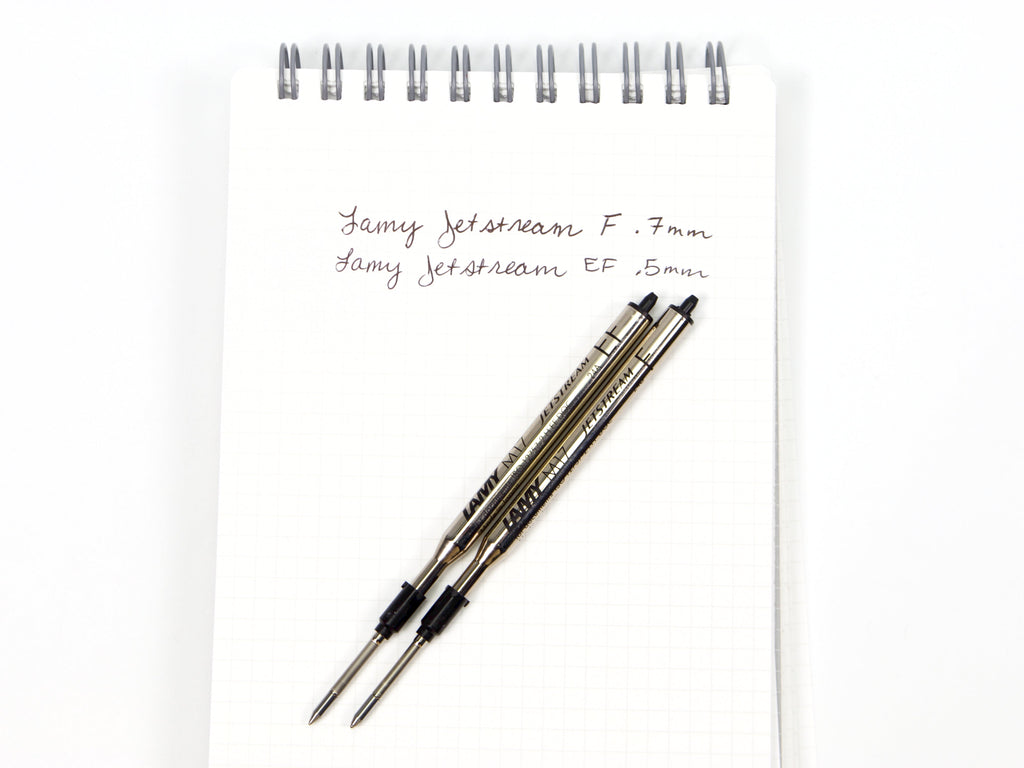 Lamy Jetstream F .7mm
Lamy Jetstream EF .5mm
LAMY M17 JETSTREAM EF
LAMY M17 JETSTREAM F